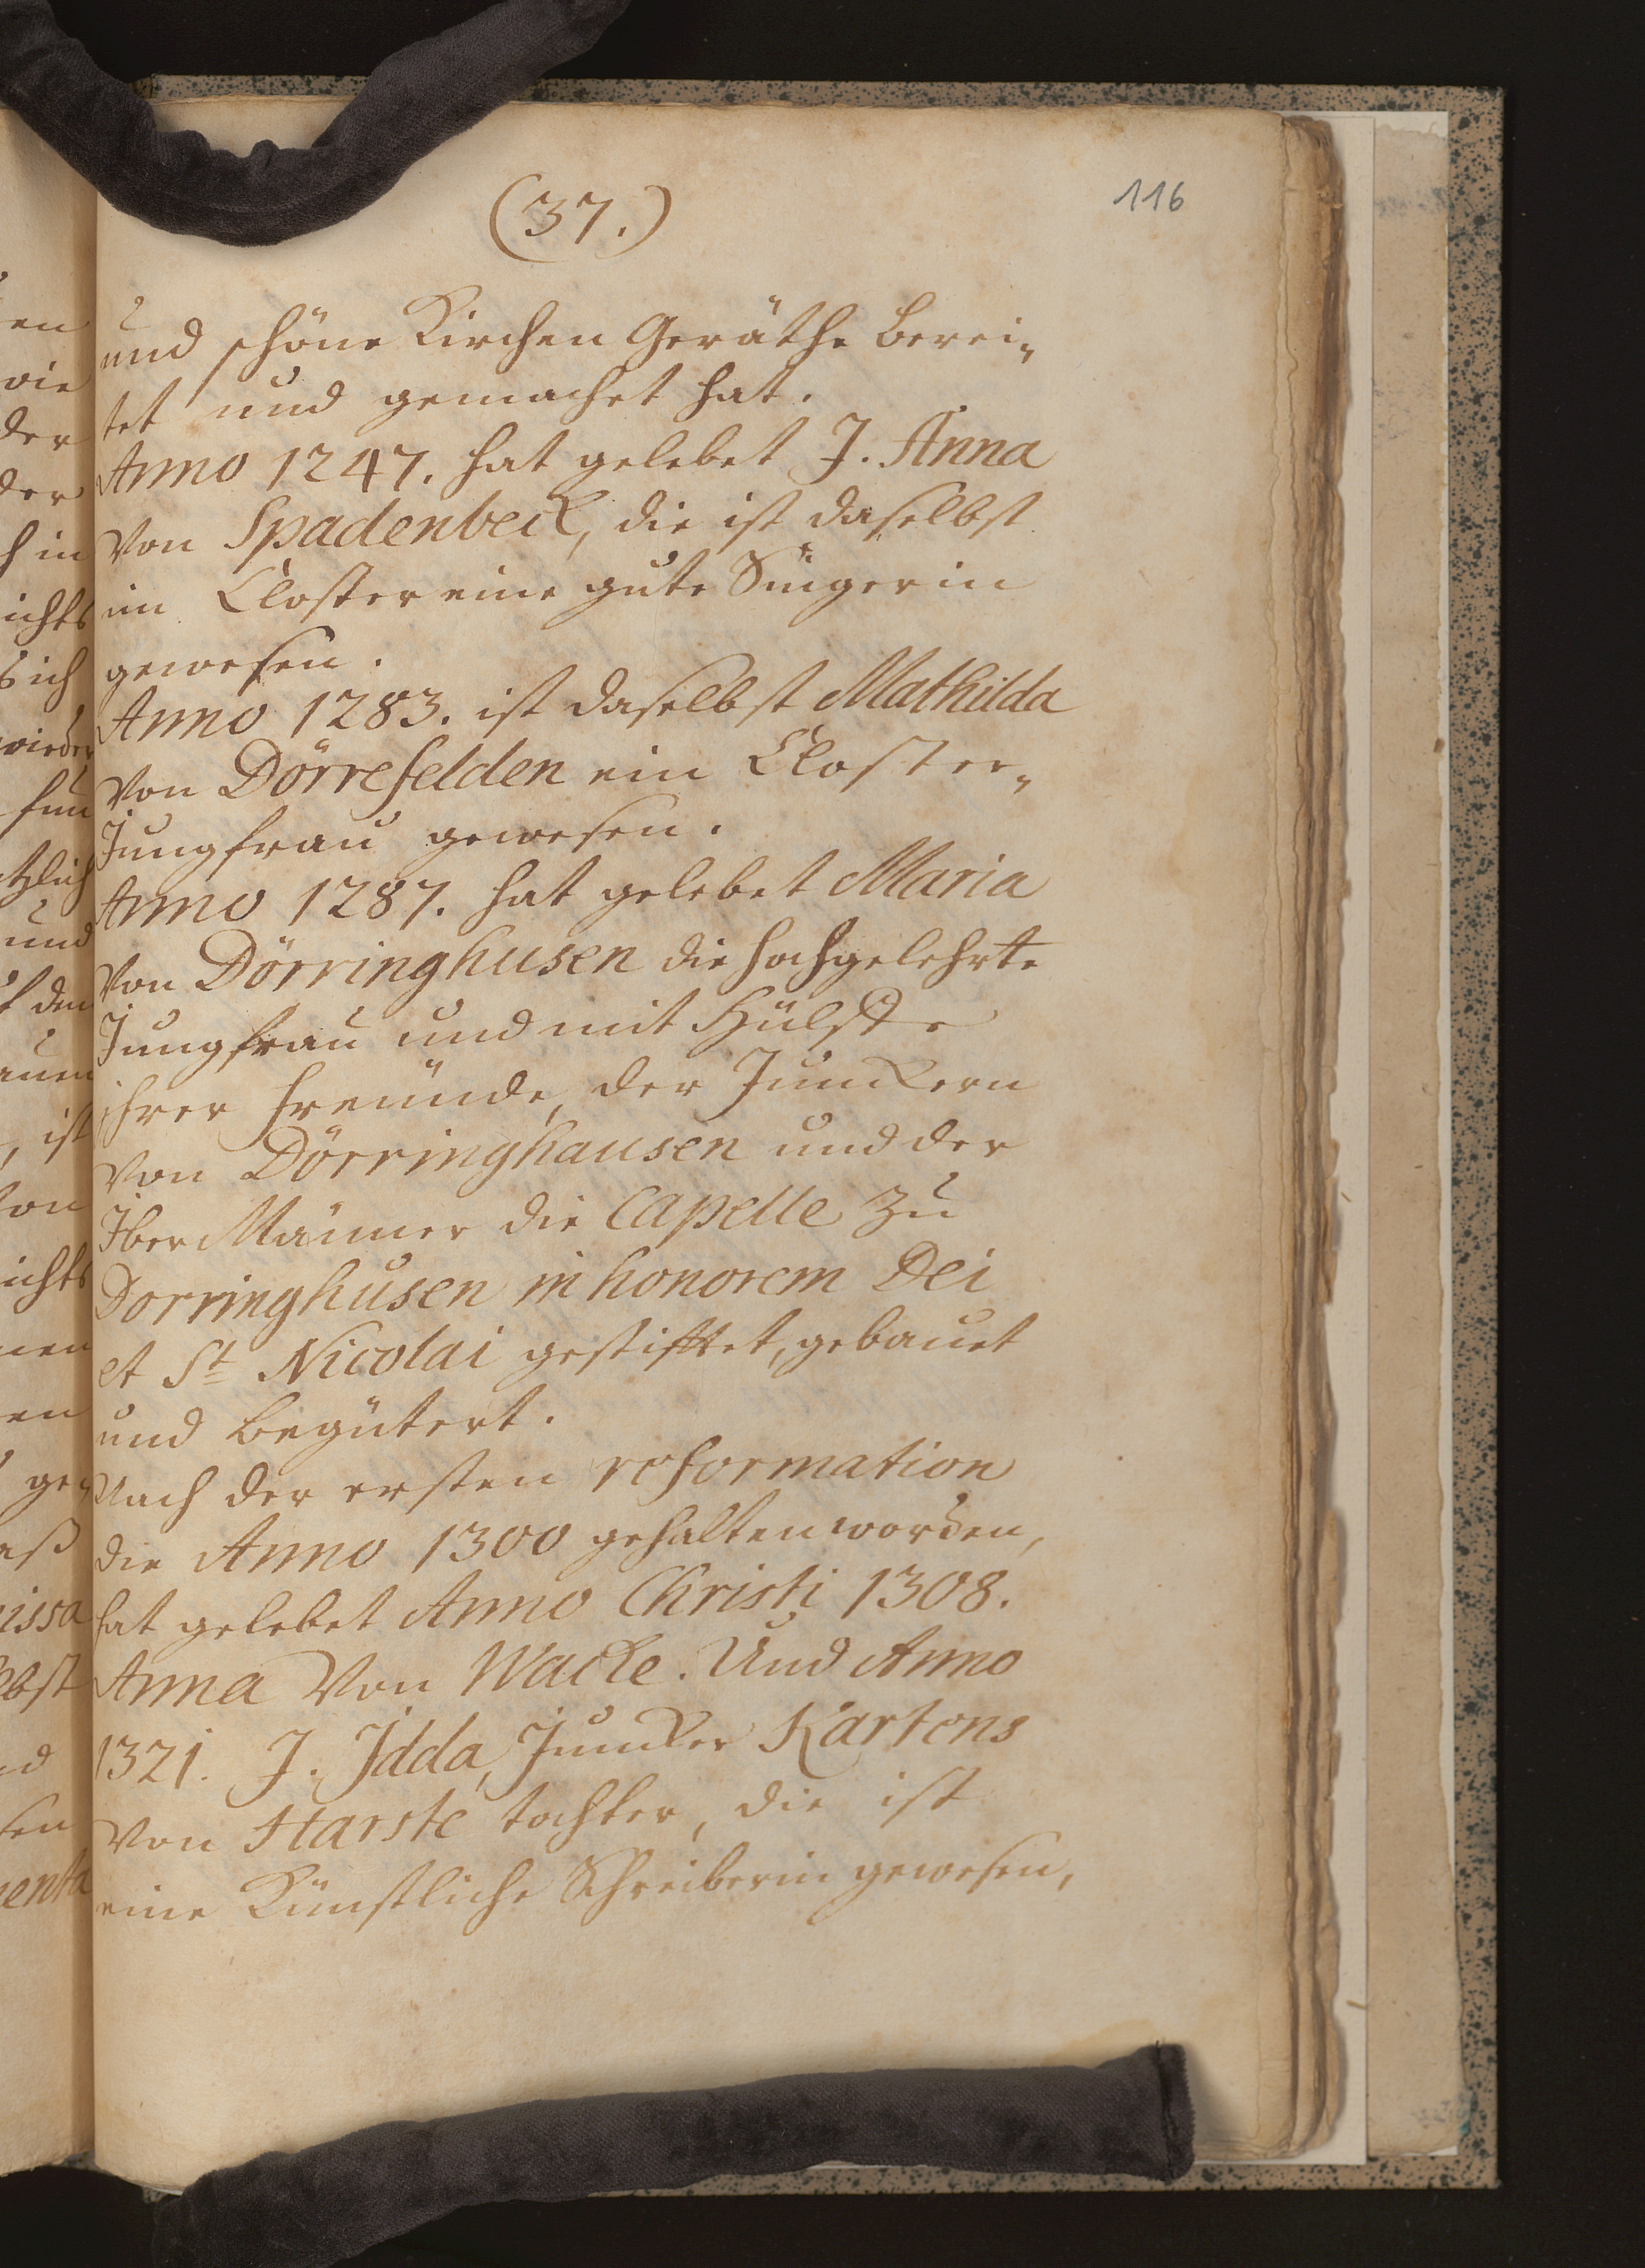 (37.)
116
und schöne Kirchen Geräthe berei„
tet und gemachet hat.
Anno 1247. hat gelebet J. Anna
von Spadenbeck, die ist daselbst
im Closter eine gute Singerin
gewesen.
Anno 1283. ist daselbst Mathilda
von Dörrefelden ein Closter„
Jungfrau gewesen.
Anno 1287. hat gelebet Maria
von Dörringhusen die hochgelehrte
Jungfrau und mit Hülffe
ihrer Freunde, der Junckern
von Dörringhausen und der
Jber Männer die Capelle zu
Dorringhusen in honorem Dei
et St Nicolai gestifftet, gebauet
und begütert.
Nach der ersten reformation
die Anno 1300 gehalten worden,
hat gelebet Anno Christi 1308.
Anna von Wacke. Und Anno
1321. J. Jdda, Juncker Kartens
von Harste tochter, die ist
eine Künstliche Schreiberin gewesen,